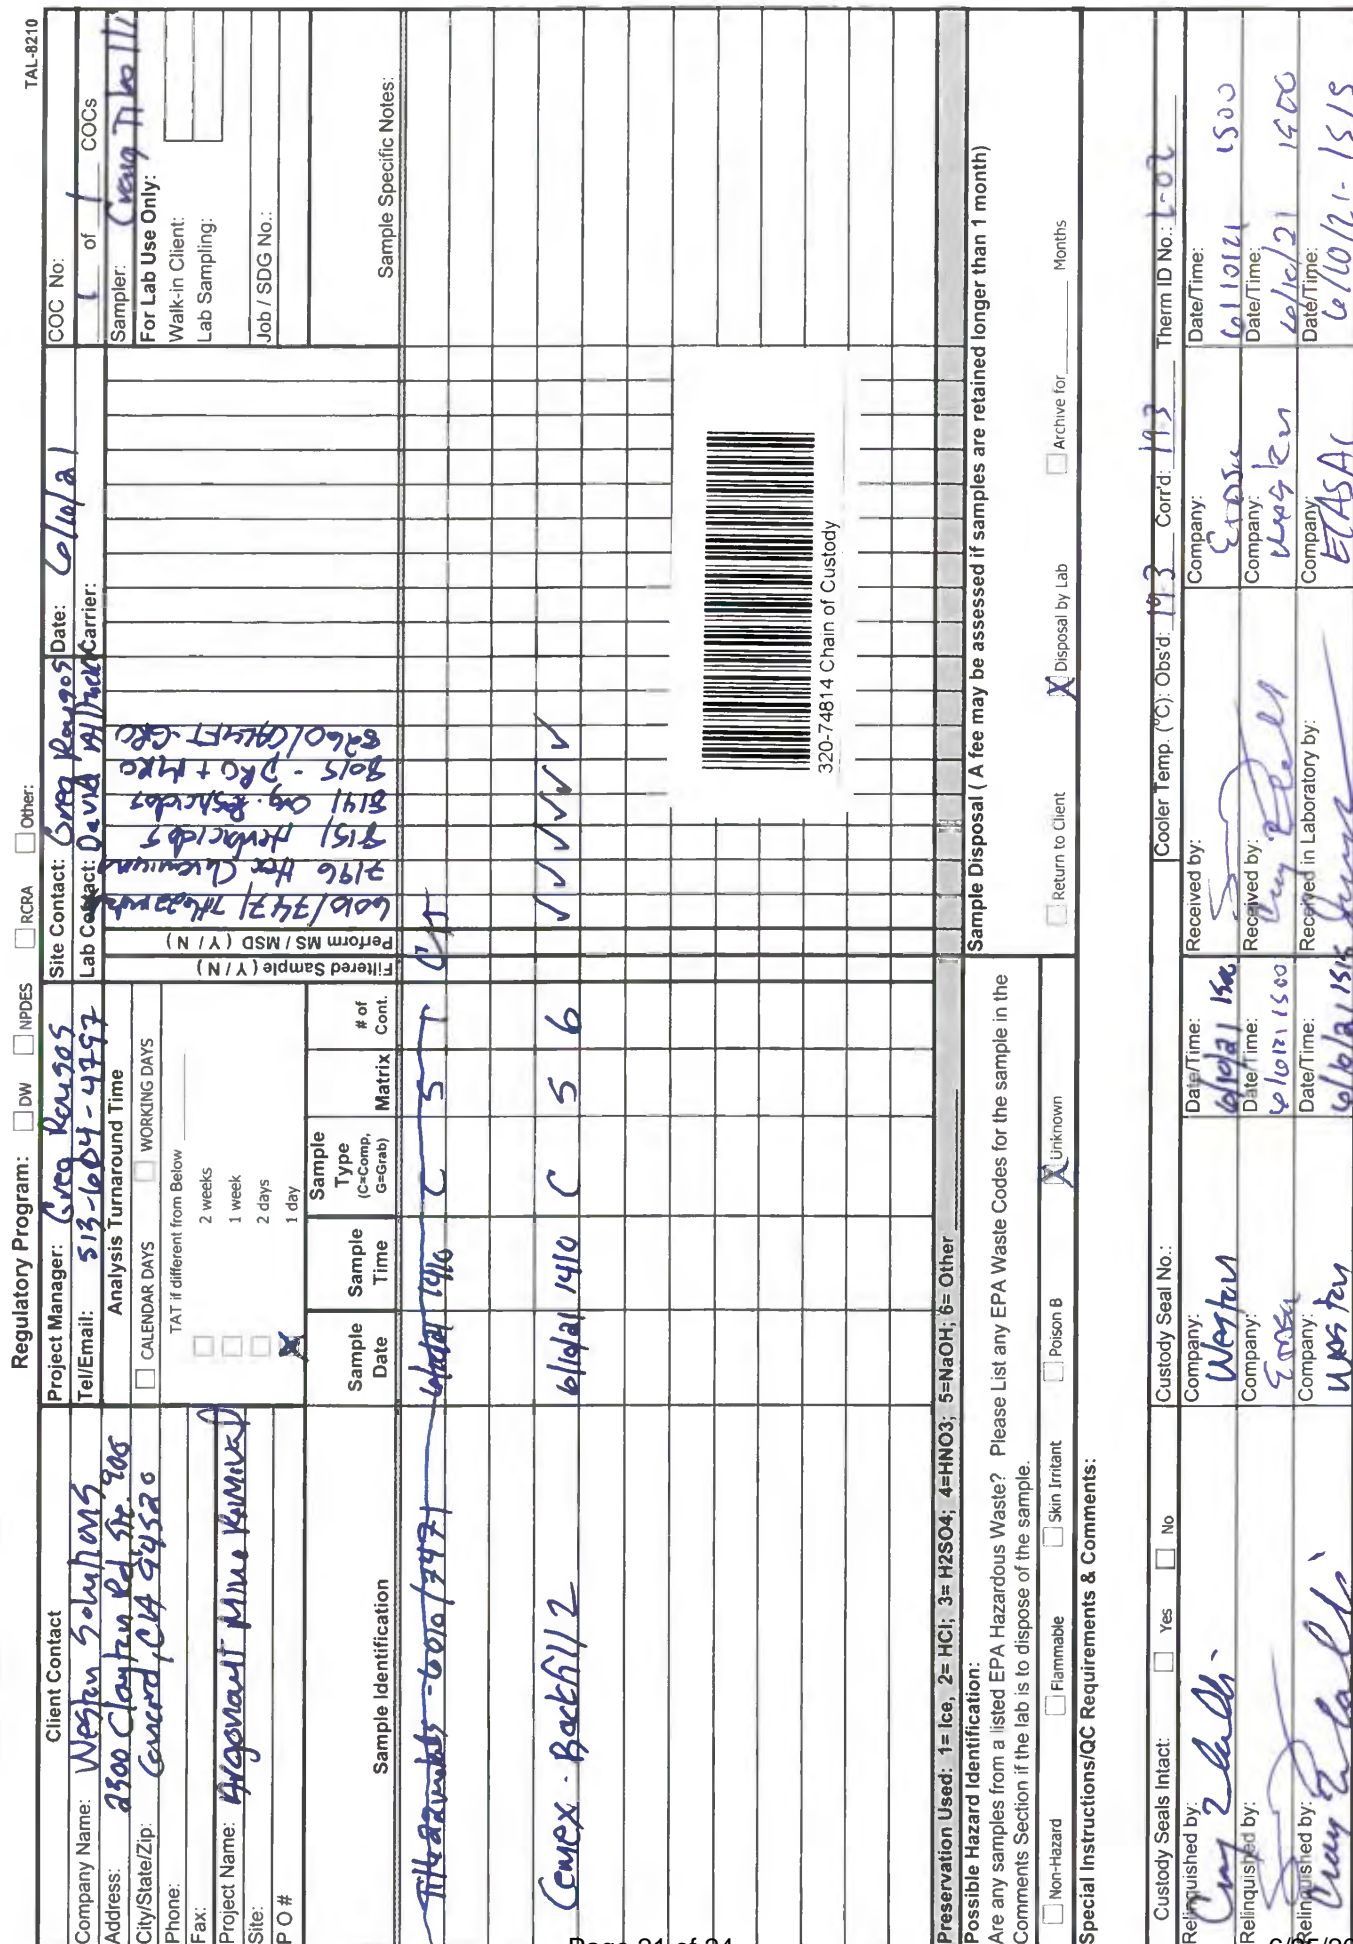 TAL-8210
Regulatory Program: DW NPDES RCRA Other:
Client Contact
Company Name: Weston Solutions
Address: 2300 Clayton Rd. Ste. 900
City/State/Zip: Concord, CA 94520
Phone:
Fax:
Project Name: Argonaut Mine Removal
Site:
P O #
Project Manager: Greg Rongos
Tel/Email: 513-604-4797
Analysis Turnaround Time
CALENDAR DAYS WORKING DAYS
TAT if different from Below
2 weeks
1 week
2 days
X 1 day
Site Contact: Greg Rongos
Lab Contact: David
Date: 6/10/21
Carrier:
COC No:
1 of 1 COCs
Sampler: Craig
For Lab Use Only:
Walk-in Client:
Lab Sampling:
Job / SDG No.:
Sample Identification
Sample Date
Sample Time
Sample Type (C=Comp, G=Grab)
Matrix
# of Cont.
Filtered Sample ( Y / N )
Perform MS / MSD ( Y / N )
6010/7471 Title 22 metals
7196 Hex Chromium
8151 Herbicides
8141 Org. Pesticides
8015 - DRO + MRO
8260/CALUFT-GRO
Sample Specific Notes:
Title 22 metals - 6010/7471 6/10/21 1410 C S 1 CT
Cemex - Backfill 2 6/10/21 1410 C S 6 ✓ ✓ ✓ ✓ ✓ ✓
320-74814 Chain of Custody
Preservation Used: 1= Ice, 2= HCl; 3= H2SO4; 4=HNO3; 5=NaOH; 6= Other
Possible Hazard Identification:
Are any samples from a listed EPA Hazardous Waste? Please List any EPA Waste Codes for the sample in the
Comments Section if the lab is to dispose of the sample.
Non-Hazard Flammable Skin Irritant Poison B X Unknown
Sample Disposal ( A fee may be assessed if samples are retained longer than 1 month)
Return to Client X Disposal by Lab Archive for Months
Special Instructions/QC Requirements & Comments:
Custody Seals Intact: Yes No
Custody Seal No.:
Cooler Temp. (°C): Obs'd: 19.3 Corr'd: 19.3 Therm ID No.: L-02
Relinquished by:
Company: Weston
Date/Time: 6/10/21 1500
Received by:
Company:
Date/Time: 6/10/21 1500
Relinquished by:
Company:
Date/Time: 6/10/21 1500
Received by:
Company: Weston
Date/Time: 6/10/21 1500
Relinquished by:
Company: Weston
Date/Time: 6/10/21 1515
Received in Laboratory by:
Company: ETASAC
Date/Time: 6/10/21 - 1515